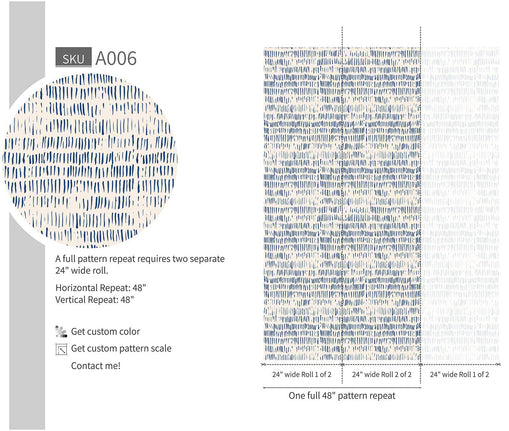 SKU A006
A full pattern repeat requires two separate
24" wide roll.
Horizontal Repeat: 48"
Vertical Repeat: 48"
Get custom color
Get custom pattern scale
Contact me!
24" wide Roll 1 of 2
24" wide Roll 2 of 2
24" wide Roll 1 of 2
One full 48" pattern repeat